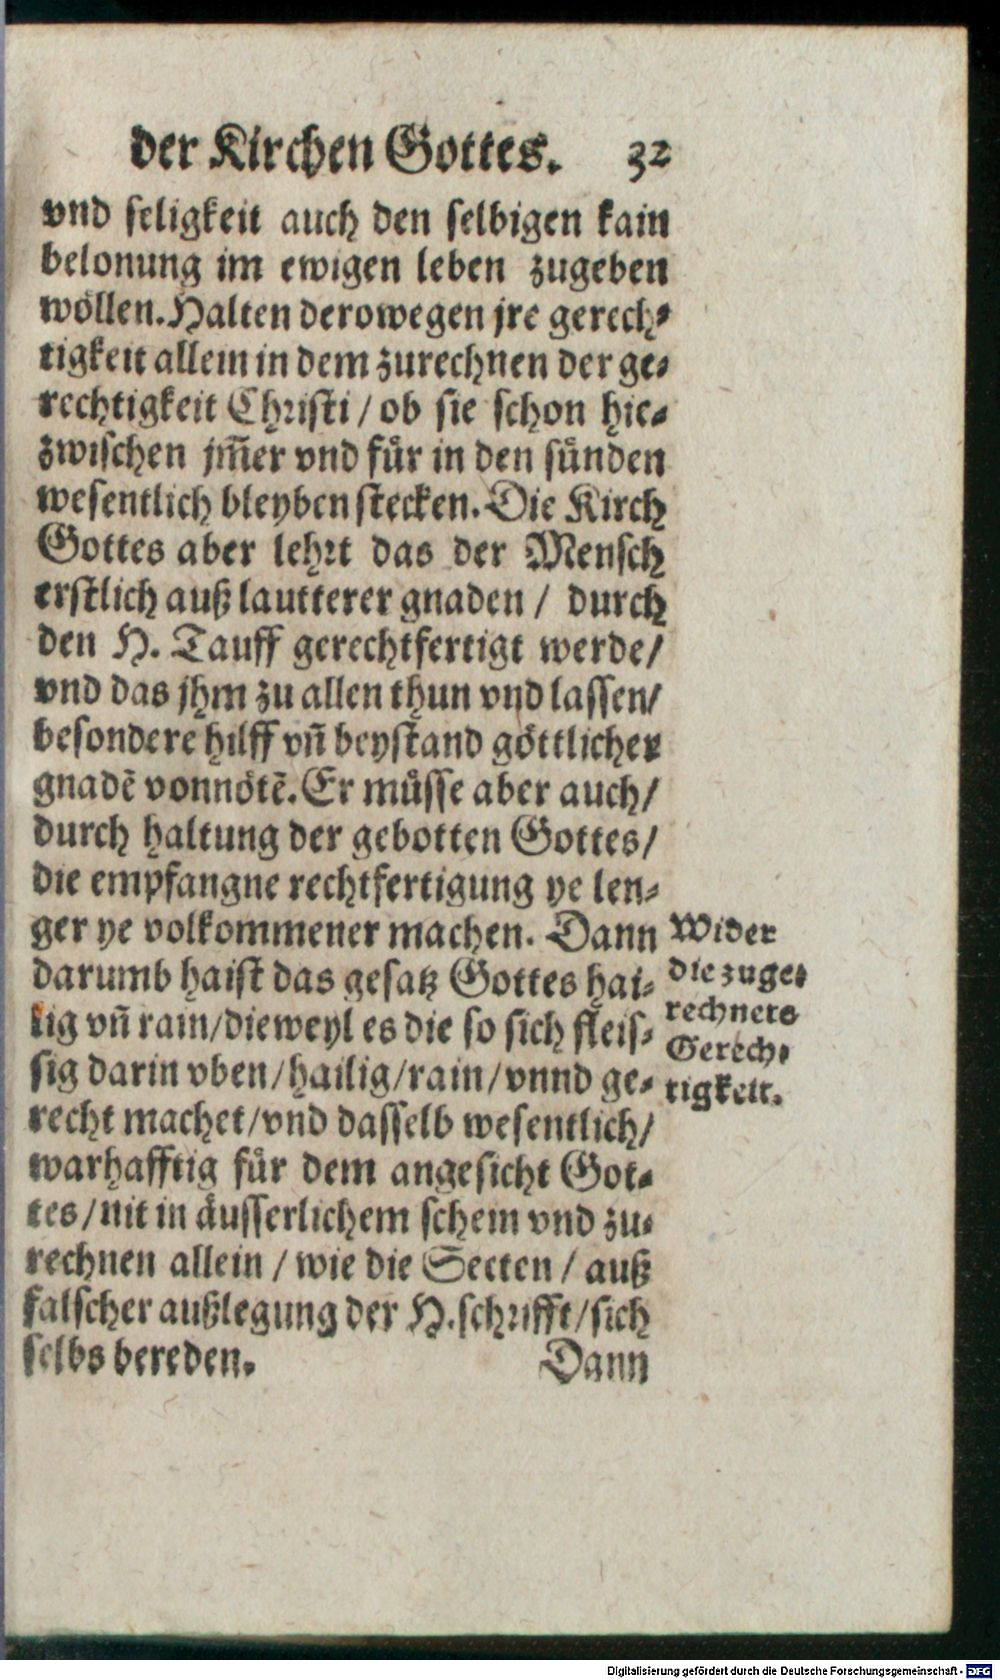 der Kirchen Gottes. 32
vnd seligkeit auch den selbigen kain
belonung im ewigen leben zugeben
wöllen. Halten derowegen jre gerech⸗
tigkeit allein in dem zurechnen der ge⸗
rechtigkeit Christi / ob sie schon hie⸗
zwischen jm̃er vnd für in den sünden
wesentlich bleyben stecken. Die Kirch
Gottes aber lehrt das der Mensch
erstlich auß lautterer gnaden / durch
den H. Tauff gerechtfertigt werde/
vnd das jhm zu allen thun vnd lassen/
besondere hilff vñ beystand göttlicher
gnadẽ vonnötẽ. Er müsse aber auch/
durch haltung der gebotten Gottes/
die empfangne rechtfertigung ye len⸗
ger ye volkommener machen. Dann
darumb haist das gesatz Gottes hai⸗
lig vñ rain/dieweyl es die so sich fleis⸗
sig darin vben/hailig/rain/vnnd ge⸗
recht machet/vnd dasselb wesentlich/
warhafftig für dem angesicht Got⸗
tes/nit in äusserlichem schein vnd zu⸗
rechnen allein / wie die Secten / auß
falscher außlegung der H.schrifft/sich
selbs bereden. Dann
Wider
die zuge⸗
rechnete
Gerech⸗
tigkeit.
Digitalisierung gefördert durch die Deutsche Forschungsgemeinschaft - DFG